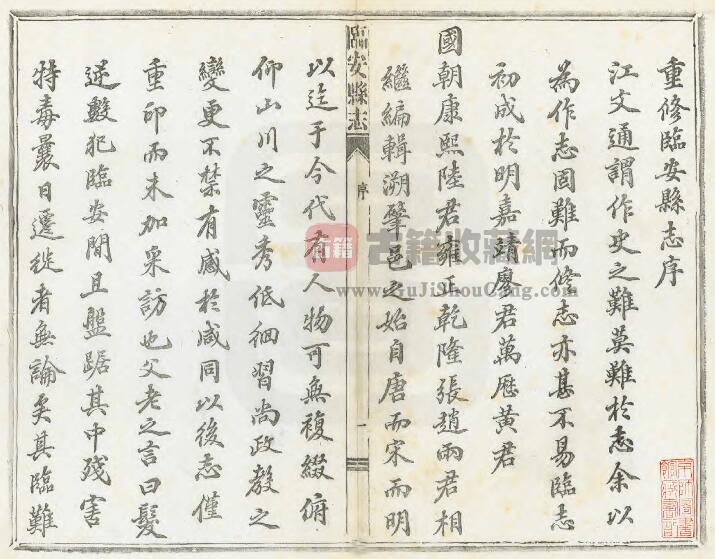 重修臨安縣志序
江文通謂作史之難莫難於志余以
為作志固難而修志亦甚不易臨志
初成於明嘉靖廖君萬厯黃君
國朝康熙陸君雍正乾隆張趙兩君相
繼編輯溯肇邑之始自唐而宋而明
臨安縣志
序
一
以迄于今代有人物可無複綴俯
仰山川之靈秀低徊習尚政教之
變更不禁有感於咸同以後志僅
重印而未加采訪也父老之言曰髮
逆數犯臨安間且盤踞其中殘害
特毒曩日遷徙者無論矣其臨難
古籍
古籍收藏網
www.GuJiShouCang.com